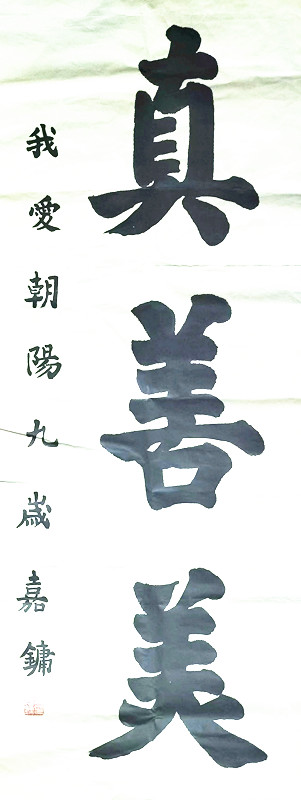 真善美
我愛朝陽九歲嘉鏞